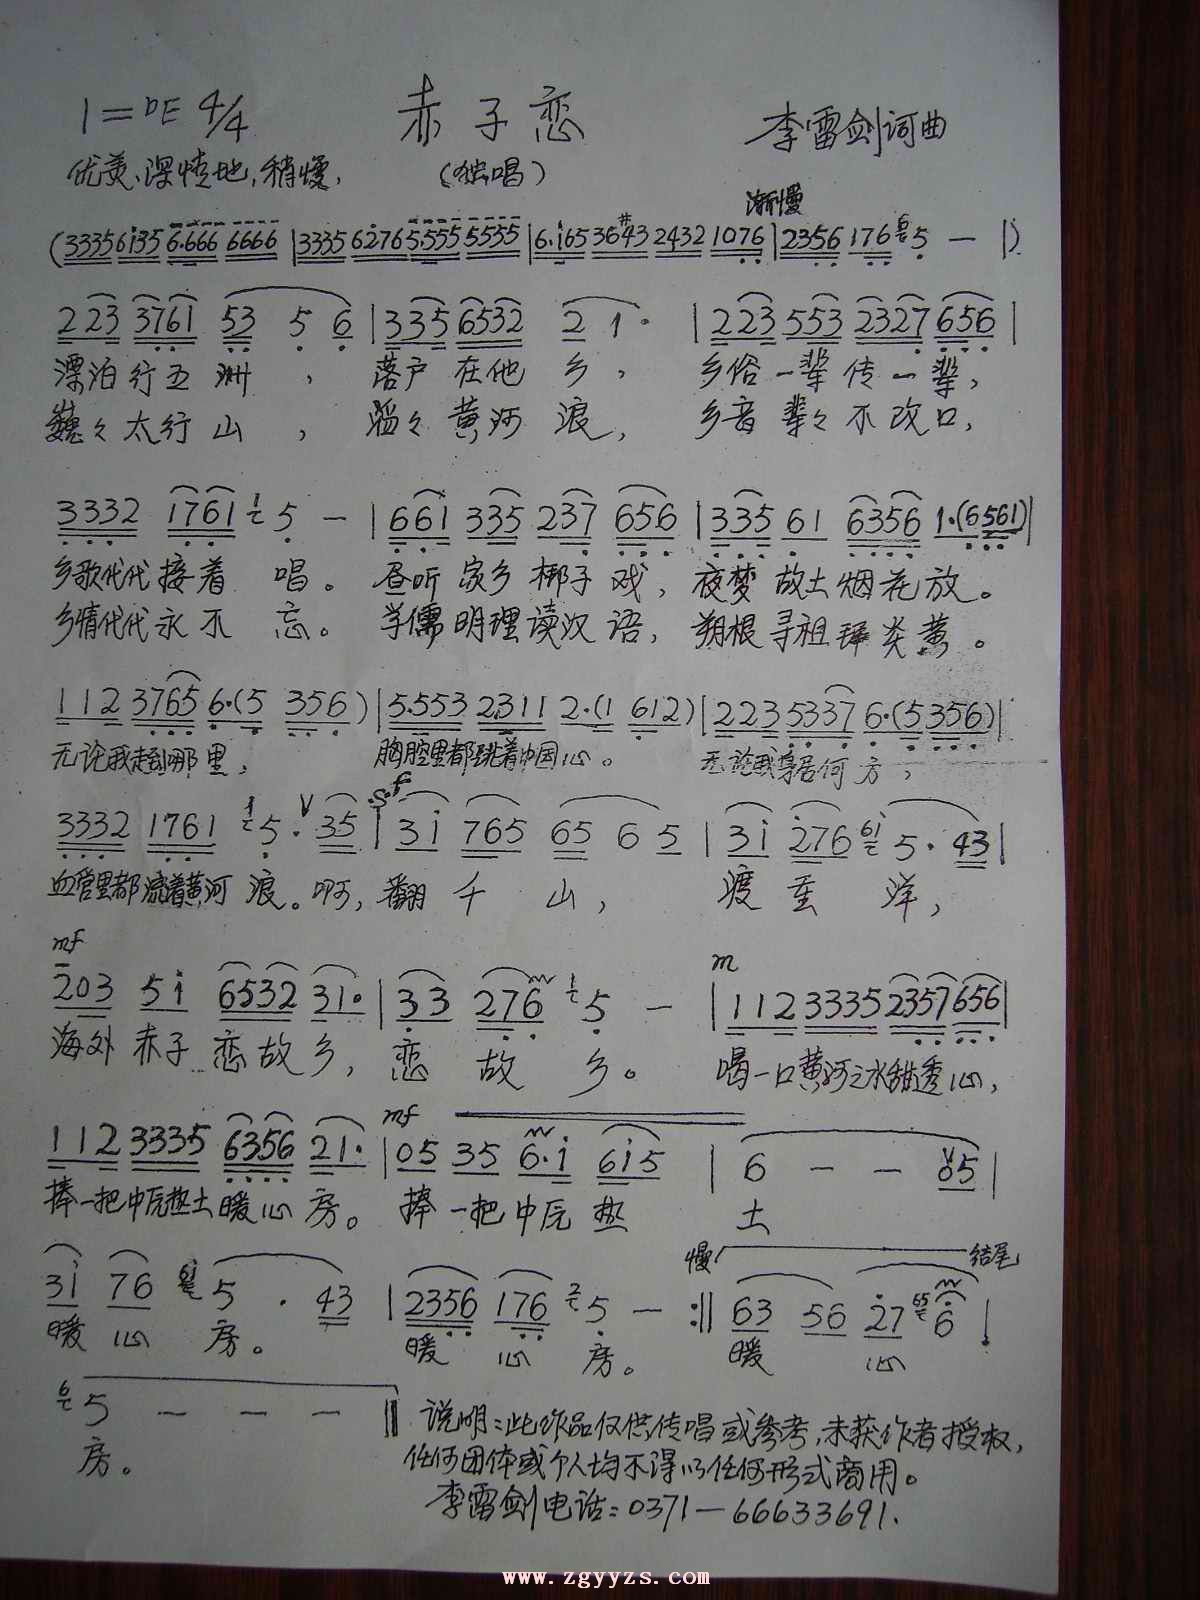 1=bE 4/4 赤子恋 李雷剑词曲
优美、深情地,稍慢, (独唱)
渐慢
(3335 6i35 6·666 6666 | 3335 6276 5·555 5555 | 6·i65 36#43 2432 1076 | 2356 176 5 — |)
223 3761 53 5 6 | 335 6532 2 1· | 223 553 2327 656 |
漂泊行五洲, 落户在他乡, 乡俗一辈传一辈,
巍々太行山, 滔々黄河浪, 乡音辈々不改口,
3332 1761 5 — | 661 335 237 656 | 335 61 6356 1·(6561) |
乡歌代代接着唱。 昼听家乡梆子戏, 夜梦故土烟花放。
乡情代代永不忘。 学儒明理读汉语, 朔根寻祖拜炎黄。
112 3765 6·(5 356) | 5·553 2311 2·(1 612) | 223 5337 6·(5356) |
无论我走到哪里, 胸腔里都跳着中国心。 无论我身居何方,
3332 1761 5· 35 | 3i 765 65 6 5 | 3i 276 5· 43 |
血管里都流着黄河浪。啊, 翻千山, 渡重洋,
mf m
203 5i 6532 31· | 33 276 5 — | 112 3335 2357 656 |
海外赤子恋故乡, 恋故乡。 喝一口黄河之水甜透心,
mf
112 3335 6356 21· | 05 35 6·i 6i5 | 6 — — 05 |
捧一把中原热土暖心房。 捧一把中原热土
慢 结尾
3i 76 5 · 43 | 2356 176 5 — :|| 63 56 27 6 |
暖心房。 暖心房。 暖心
5 — — — ||
房。
说明:此作品仅供传唱或参考,未获作者授权,
任何团体或个人均不得以任何形式商用。
李雷剑电话:0371—66633691.
www.zgyyzs.com